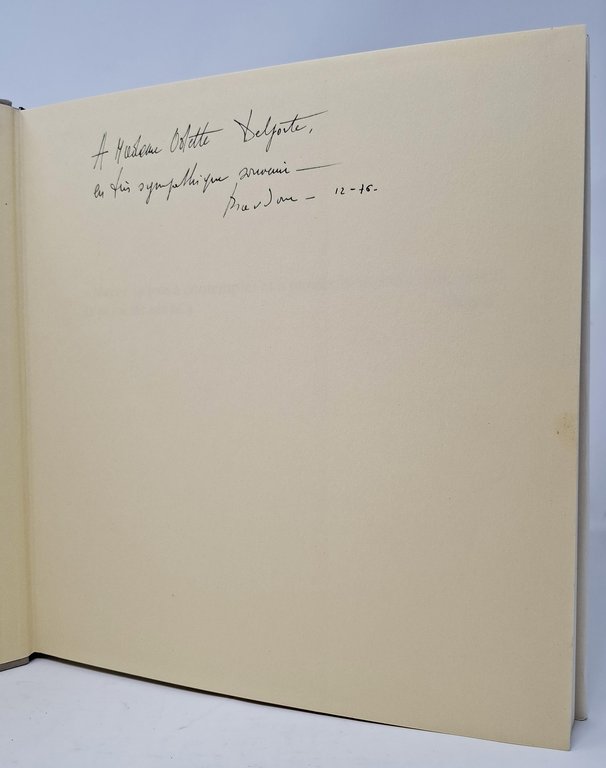 A Madame Odette Delporte,
en très sympathique souvenir —
— 12-76-